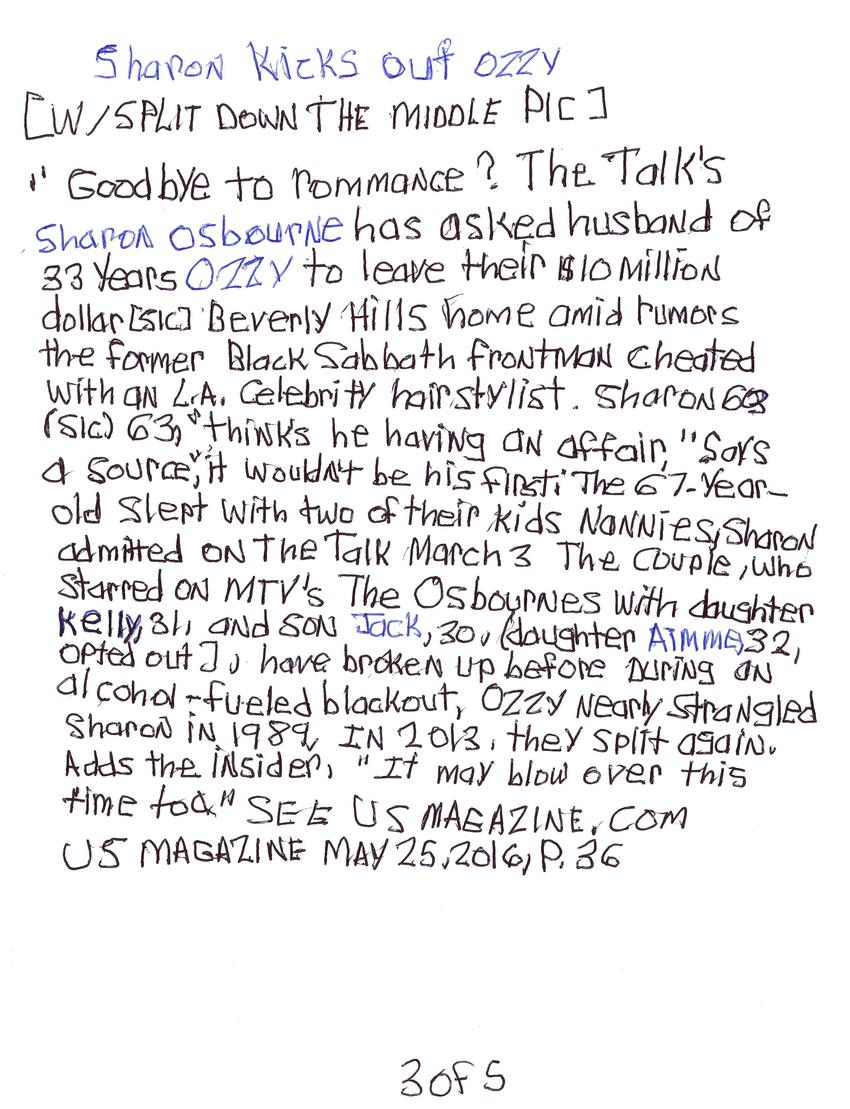 Sharon Kicks out OZZY
[W/SPLIT DOWN THE MIDDLE PIC]
" Goodbye to rommance? The Talk's
Sharon Osbourne has asked husband of
33 Years OZZY to leave their $10 Million
dollar [SIC] Beverly Hills home amid rumors
the former Black Sabbath frontman cheated
With an L.A. Celebrity hairstylist. Sharon 63
(SIC) 63, "think's he having an affair," Says
a source, "it wouldn't be his first." The 67-Year-
old slept with two of their kids Nannies, Sharon
admitted on The Talk March 3 The couple, who
Starred on MTV's The Osbournes with daughter
Kelly, 31, and son Jack, 30, (daughter Aimme, 32,
opted out], have broken up before During an
alcohol-fueled blackout, OZZY nearly strangled
Sharon in 1989, IN 2013, they split again.
Adds the insider, "It may blow over this
time too" SEE US MAGAZINE.COM
US MAGAZINE MAY 25, 2016, P. 36
3 of 5